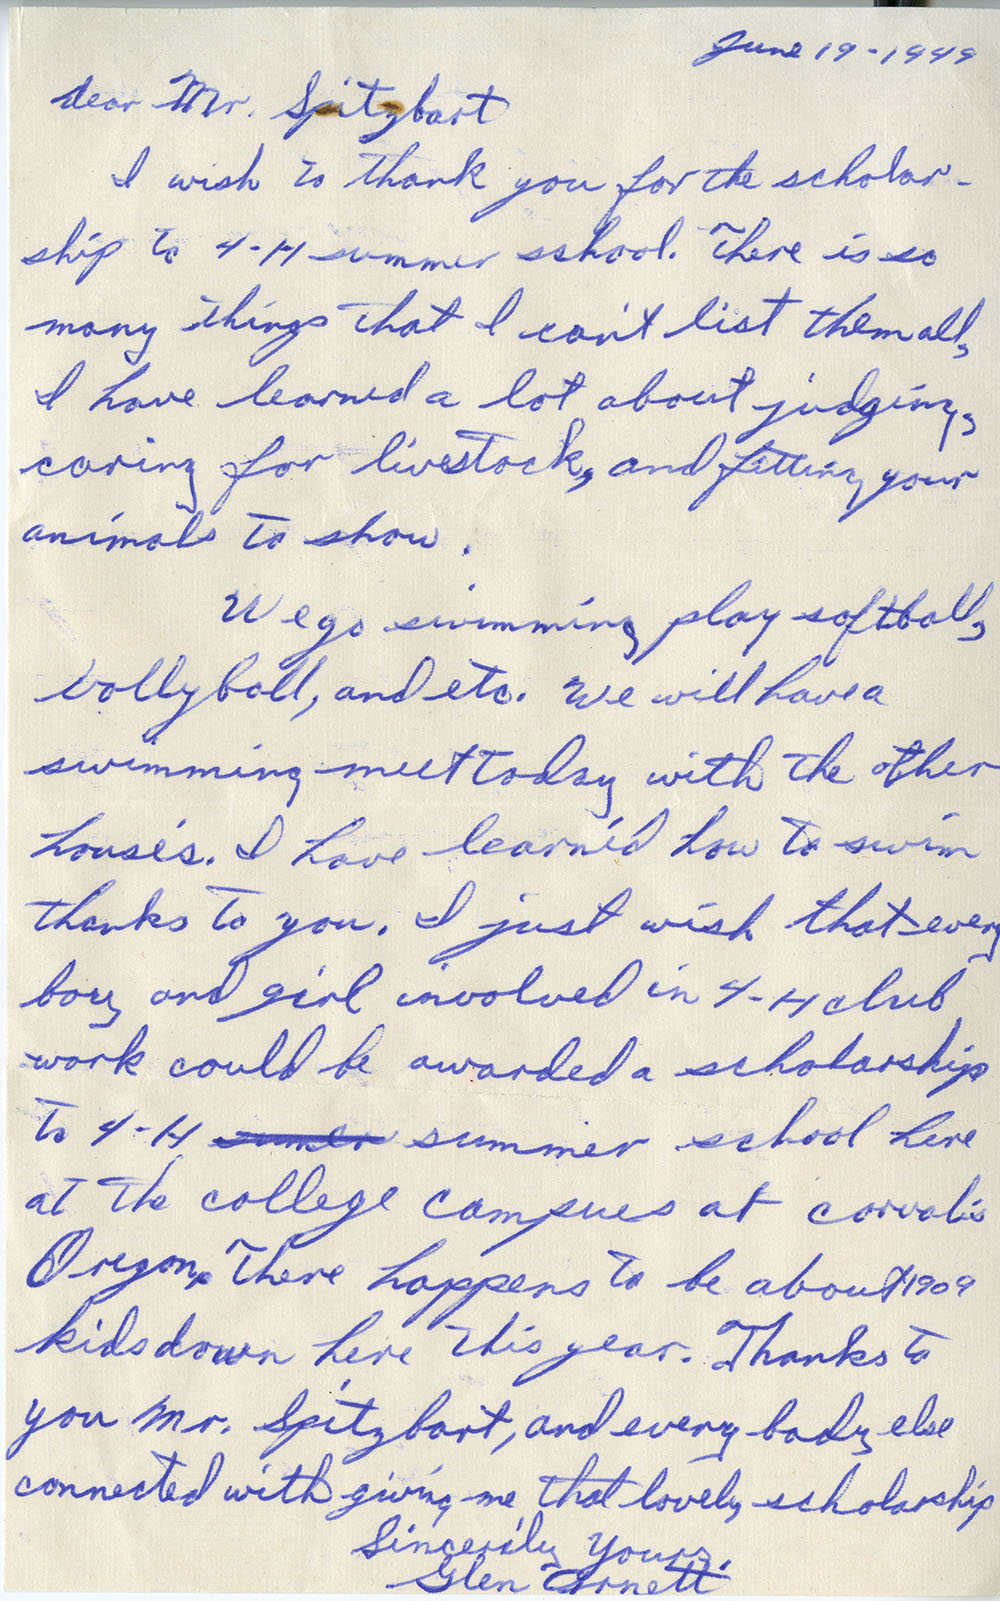 June 19-1949
dear Mr. Spitzbart
I wish to thank you for the scholar-
ship to 4-H summer school. There is so
many things that I can't list them all,
I have learned a lot about judging,
caring for livestock, and fitting your
animals to show.
We go swimming play softball,
vollyball, and etc. We will have a
swimming meet today with the other
house's. I have learn'd how to swim
thanks to you. I just wish that every
boy and girl involved in 4-H club
work could be awarded a scholarship
to 4-H sumer summer school here
at the college campues at corvalis
Oregon. There happens to be about 1909
kids down here this year. Thanks to
you Mr. Spitzbart, and every body else
connected with giving me that lovely scholarship
Sincerily Yours,
Glen Arnett